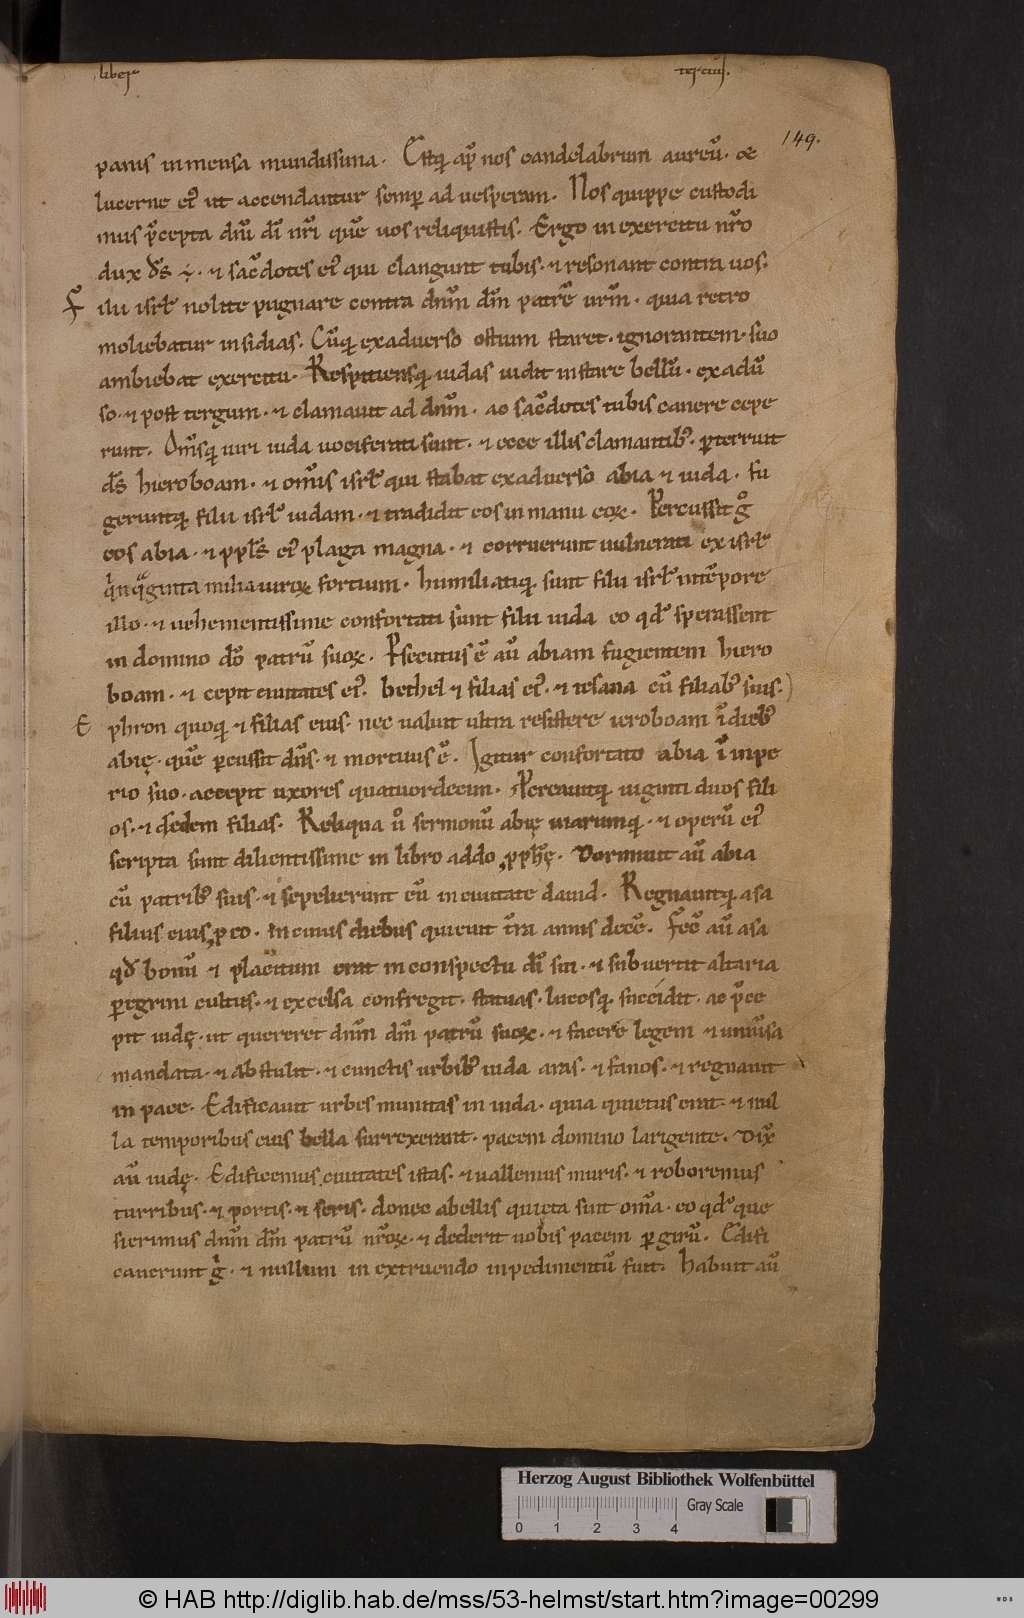 liber tercius.
149.
panis in mensa mundissima. Estq; ap̄ nos candelabrum aureū. ac
lucerne ei᷒ ut accendantur semp̄ ad uesperam. Nos quippe custodi
mus p̄cepta dn̄i dī nr̄i quē uos reliquistis. Ergo in exercitu nr̄o
dux d̄s ÷. et sac̄dotes ei᷒ qui clangunt tubis. et resonant contra uos.
F ilii isrł nolite pugnare contra dn̄m dm̄ patrū urm̄. quia retro
moliebatur insidias. Cūq; exaduerso ostium staret. ignorantem. suo
ambiebat exercitu. Respiciensq; iudas uidit instare bellū. exadū
so. et post tergum. et clamauit ad dn̄m. ac sac̄dotes tubis canere cepe
runt. Om̄sq; uiri iuda uociferati sunt. et ecce illis clamantib᷒. p̄terruit
d̄s hieroboam. et om̄is isrł qui stabat exaduerso abia et iuda. fu
geruntq; filii isrł iudam. et tradidit eos in manu eoꝝ. Percussit gͦ
eos abia. et ppl̄s ei᷒ plaga magna. et corruerunt uulnerati ex isrł
qͥnqͣginta milia uiroꝝ fortium. humiliatiq; sunt filii isrł in tēpore
illo. et uehementissime confortati sunt filii iuda eo qd̓ sperassent
in domino dō patrū suoꝝ. Psecutus ē aū abiam fugientem hiero
boam. et cepit ciuitates ei᷒. bethel et filias ei᷒. et iesana cū filiab᷒ suis.
E phron quoq; et filias eius. nec ualuit ultra resistere ieroboam ī dieb᷒
abię. quē p̄cussit dn̄s. et mortuus ē. Igitur confortato abia ī inpe
rio suo. accepit uxores quatuordecim. Procreauitq; uiginti duos fili
os. et sedem filias. Reliqua ū sermonū abię uiarumq;. et operū ei᷒
scripta sunt dilientissime in libro addo pph̄ę. Dormiuit aū abia
cū patrib᷒ suis. et sepelierunt eū in ciuitate dauid. Regnauitq; asa
filius eius p eo. In cuius diebus quieuit t̄ra annis decē. Fec̄ aū asa
qd̓ bonū et placitum erat in conspectu dī sui. et subuertit altaria
p̄egrini cultus. et excelsa confregit. statuas. lucosq; succidit. ac p̄ce
pit iudę. ut quereret dn̄m dm̄ patrū suoꝝ. et facere legem et uniūsa
mandata. et abstulit. et cunctis urbib᷒ iuda aras. et fanos. et regnauit
in pace. Edificauit urbes munitas in iuda. quia quietus erat. et nul
la temporibus eius bella surrexerunt. pacem domino larigente. Dix̄
aū iudę. Edificemus ciuitates istas. et uallemus muris. et roboremus
turribus. et portis. et seris. donec abellis quięta sunt om̄a. eo qd̓ que
sierimus dn̄m dm̄ patrū nr̄oꝝ. et dederit nobis pacem p̄ girū. Edifi
cauerunt gͥ. et nullum in extruendo inpedimentū fuit. Habuit aū
Herzog August Bibliothek Wolfenbüttel
Gray Scale
0 1 2 3 4
© HAB http://diglib.hab.de/mss/53-helmst/start.htm?image=00299